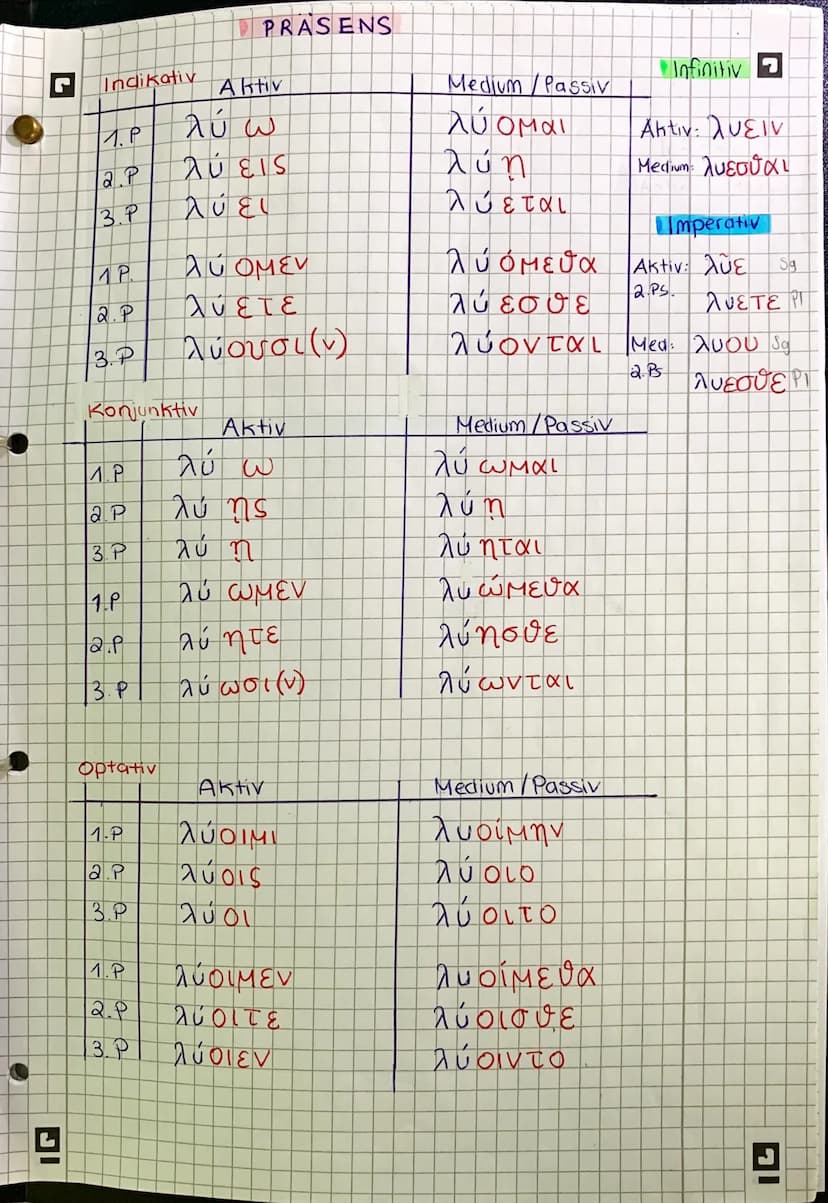 PRÄSENS
Indikativ Aktiv Medium/Passiv
1.P λύ ω λύομαι
2.P λύ εις λύ ῃ
3.P λύ ει λύεται
1P. λύ ομεν λύόμεθα
2.P λύετε λύεσθε
3.P λύουσι(ν) λύονται
Infinitiv
Aktiv: λυειν
Medium: λυεσθαι
Imperativ
Aktiv: λῦε Sg
2.Ps. λυετε Pl
Med: λυου Sg
2.Ps λυεσθε Pl
Konjunktiv Aktiv Medium/Passiv
1.P λύ ω λύωμαι
2.P λύ ῃς λύ ῃ
3.P λύ ῃ λύηται
1.P λύ ωμεν λυώμεθα
2.P λύ ητε λύησθε
3.P λύωσι(ν) λύωνται
Optativ Aktiv Medium/Passiv
1.P λύοιμι λυοίμην
2.P λύοις λύ οιο
3.P λύοι λύοιτο
1.P λύοιμεν λυοίμεθα
2.P λύοιτε λύοισθε
3.P λύοιεν λύοιντο